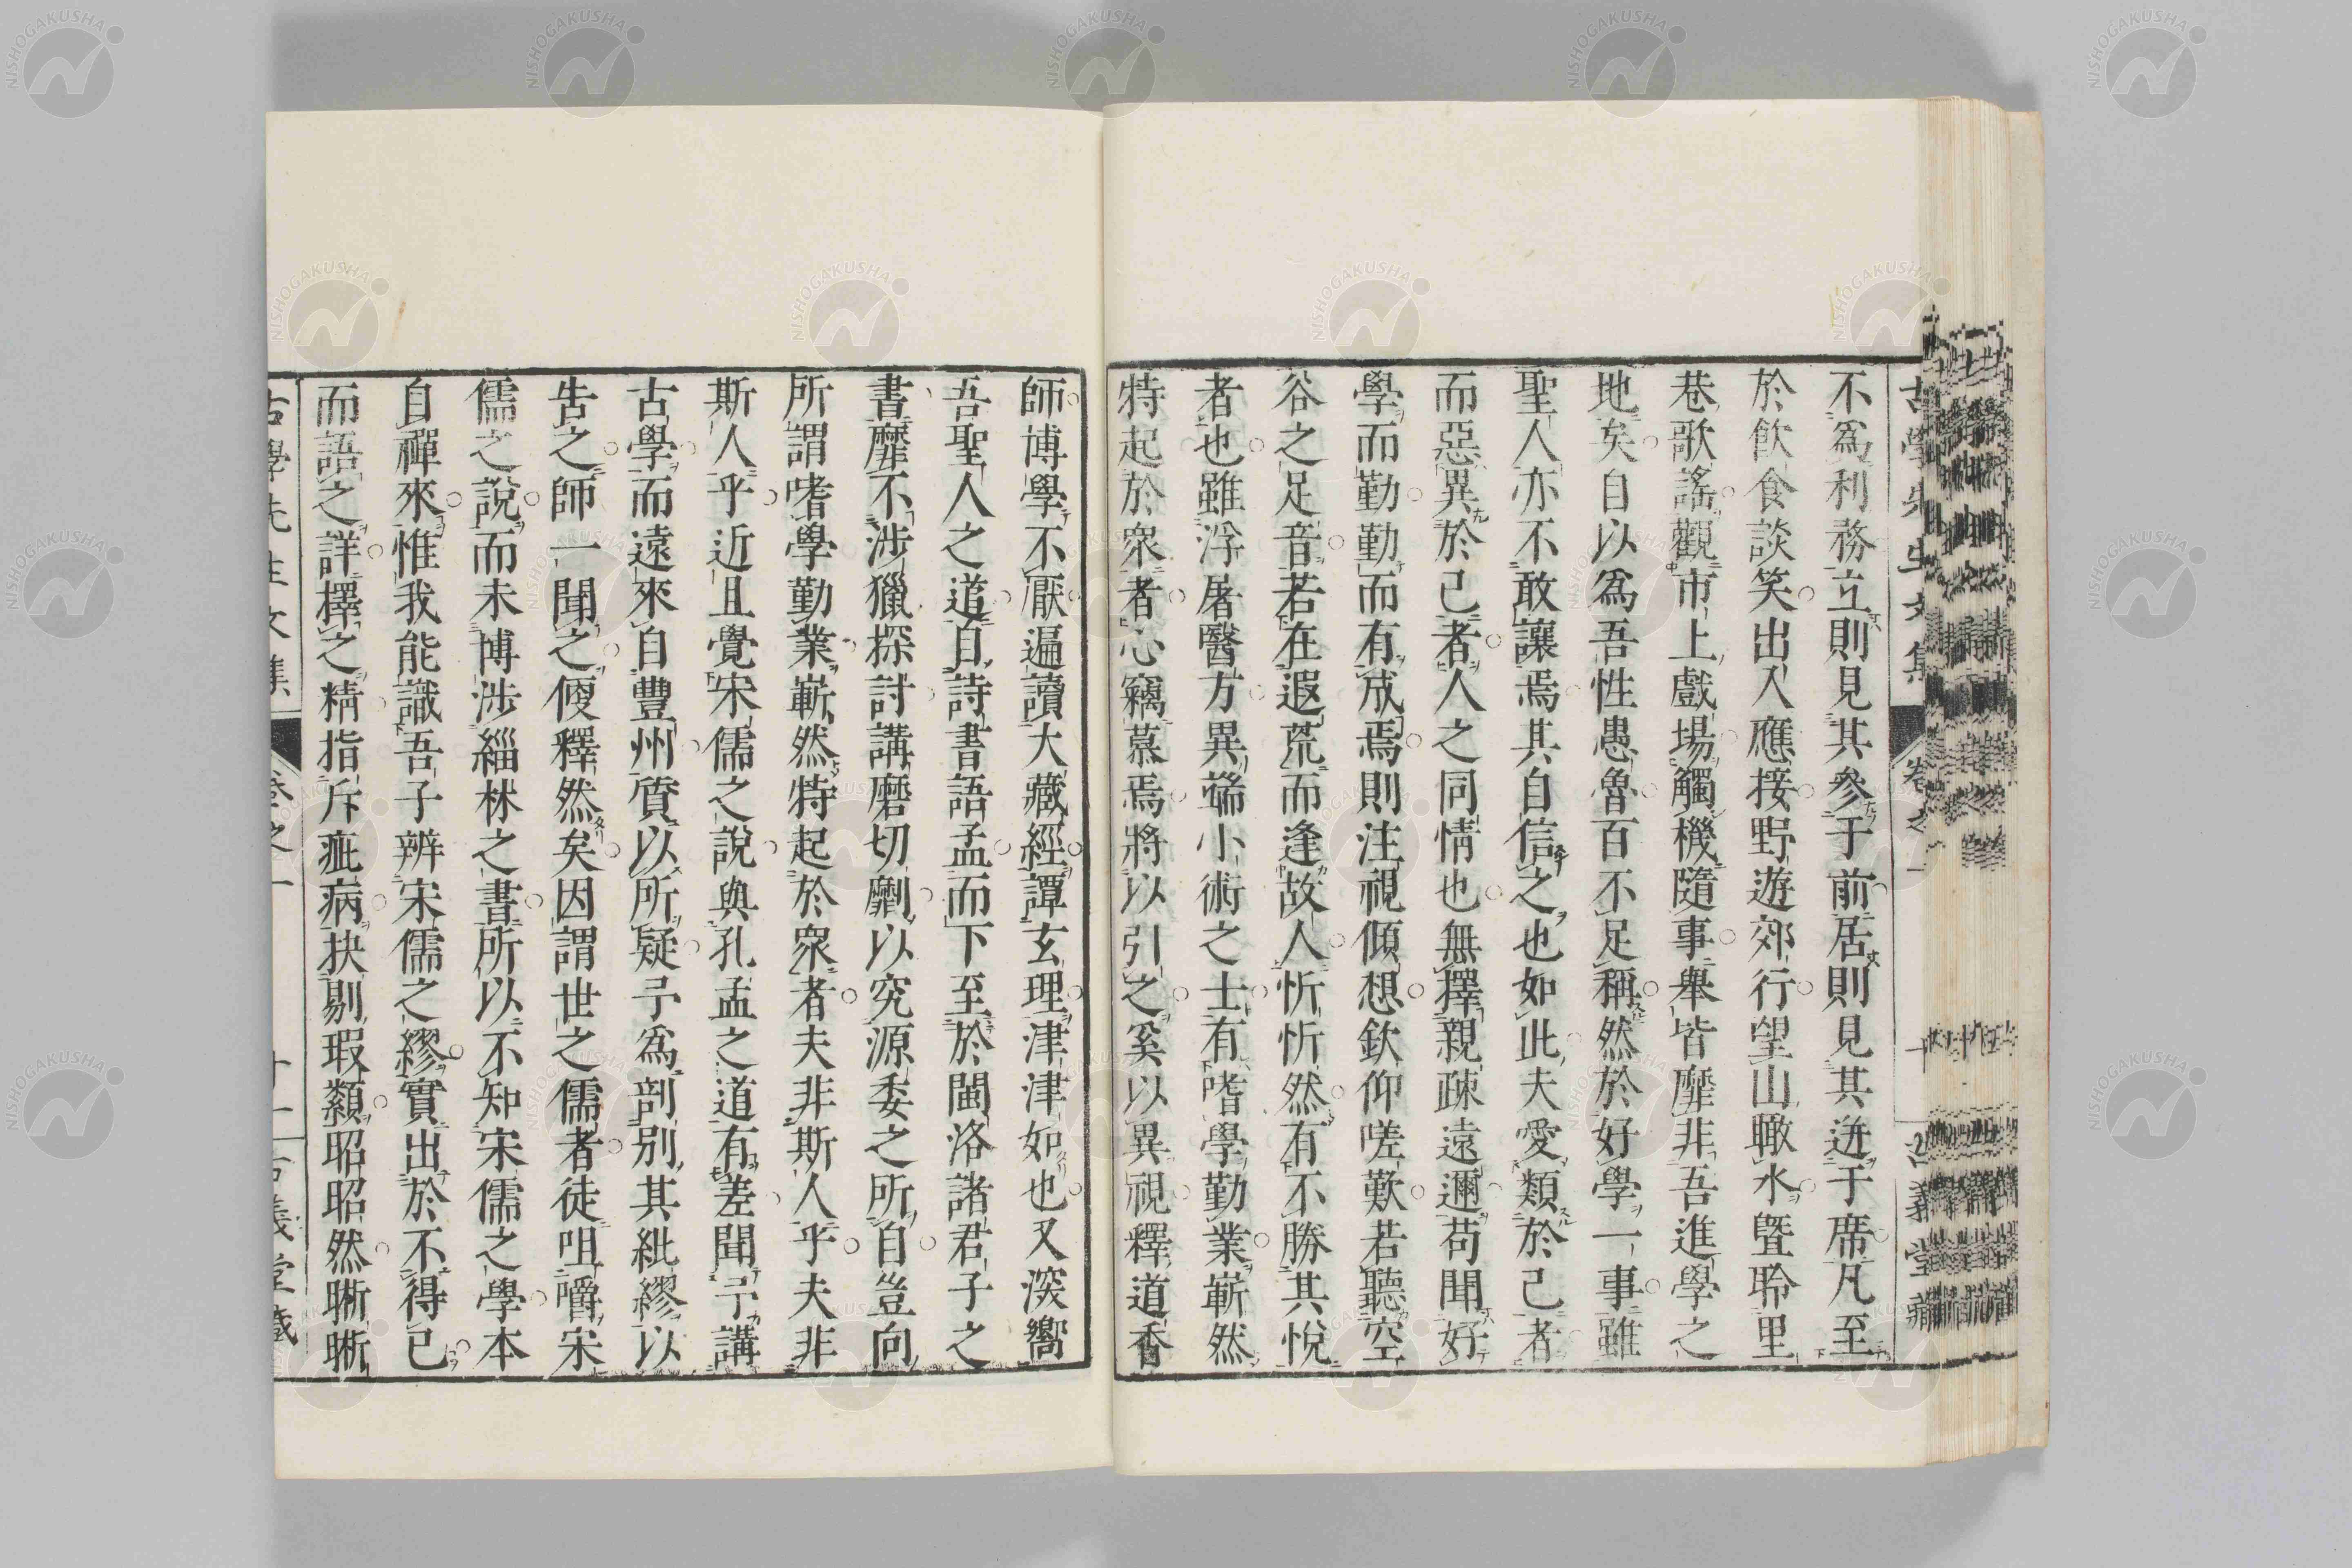 古學先生文集 卷之一 十 古義堂藏
不爲利務立則見其參于前居則見其迸于席凡至
於飮食談笑出入應接野遊郊行望山瞰水曁聆里
巷歌謠觀市上戲場觸機隨事舉皆靡非吾進學之
地矣自以爲吾性愚魯百不足稱然於好學一事雖
聖人亦不敢讓焉其自信之也如此夫愛類於己者
而惡異於己者人之同情也無擇親疎遠邇苟聞好
學而勤勤而有成焉則注視傾想欽仰嗟歎若聽空
谷之足音若在遐荒而逢故人忻忻然有不勝其悅
者也雖浮屠醫方異端小術之士有嗜學勤業嶄然
特起於衆者心竊慕焉將以引之奚以異視釋道香
師博學不厭遍讀大藏經譚玄理津津如也又深嚮
吾聖人之道自詩書語孟而下至於閩洛諸君子之
書靡不涉獵探討講磨切劘以究源委之所自豈向
所謂嗜學勤業嶄然特起於衆者夫非斯人乎夫非
斯人乎近且覺宋儒之說與孔孟之道有差聞予講
古學而遠來自豐州質以所疑予爲剖別其紕繆以
告之師一聞之便釋然矣因謂世之儒者徒咀嚼宋
儒之說而未博涉緇林之書所以不知宋儒之學本
自禪來惟我能識吾子辨宋儒之繆實出於不得已
而語之詳擇之精指斥疵病抉剔瑕纇昭昭然晰晰
古學先生文集 卷之一 十一 古義堂藏
NISHOGAKUSHA